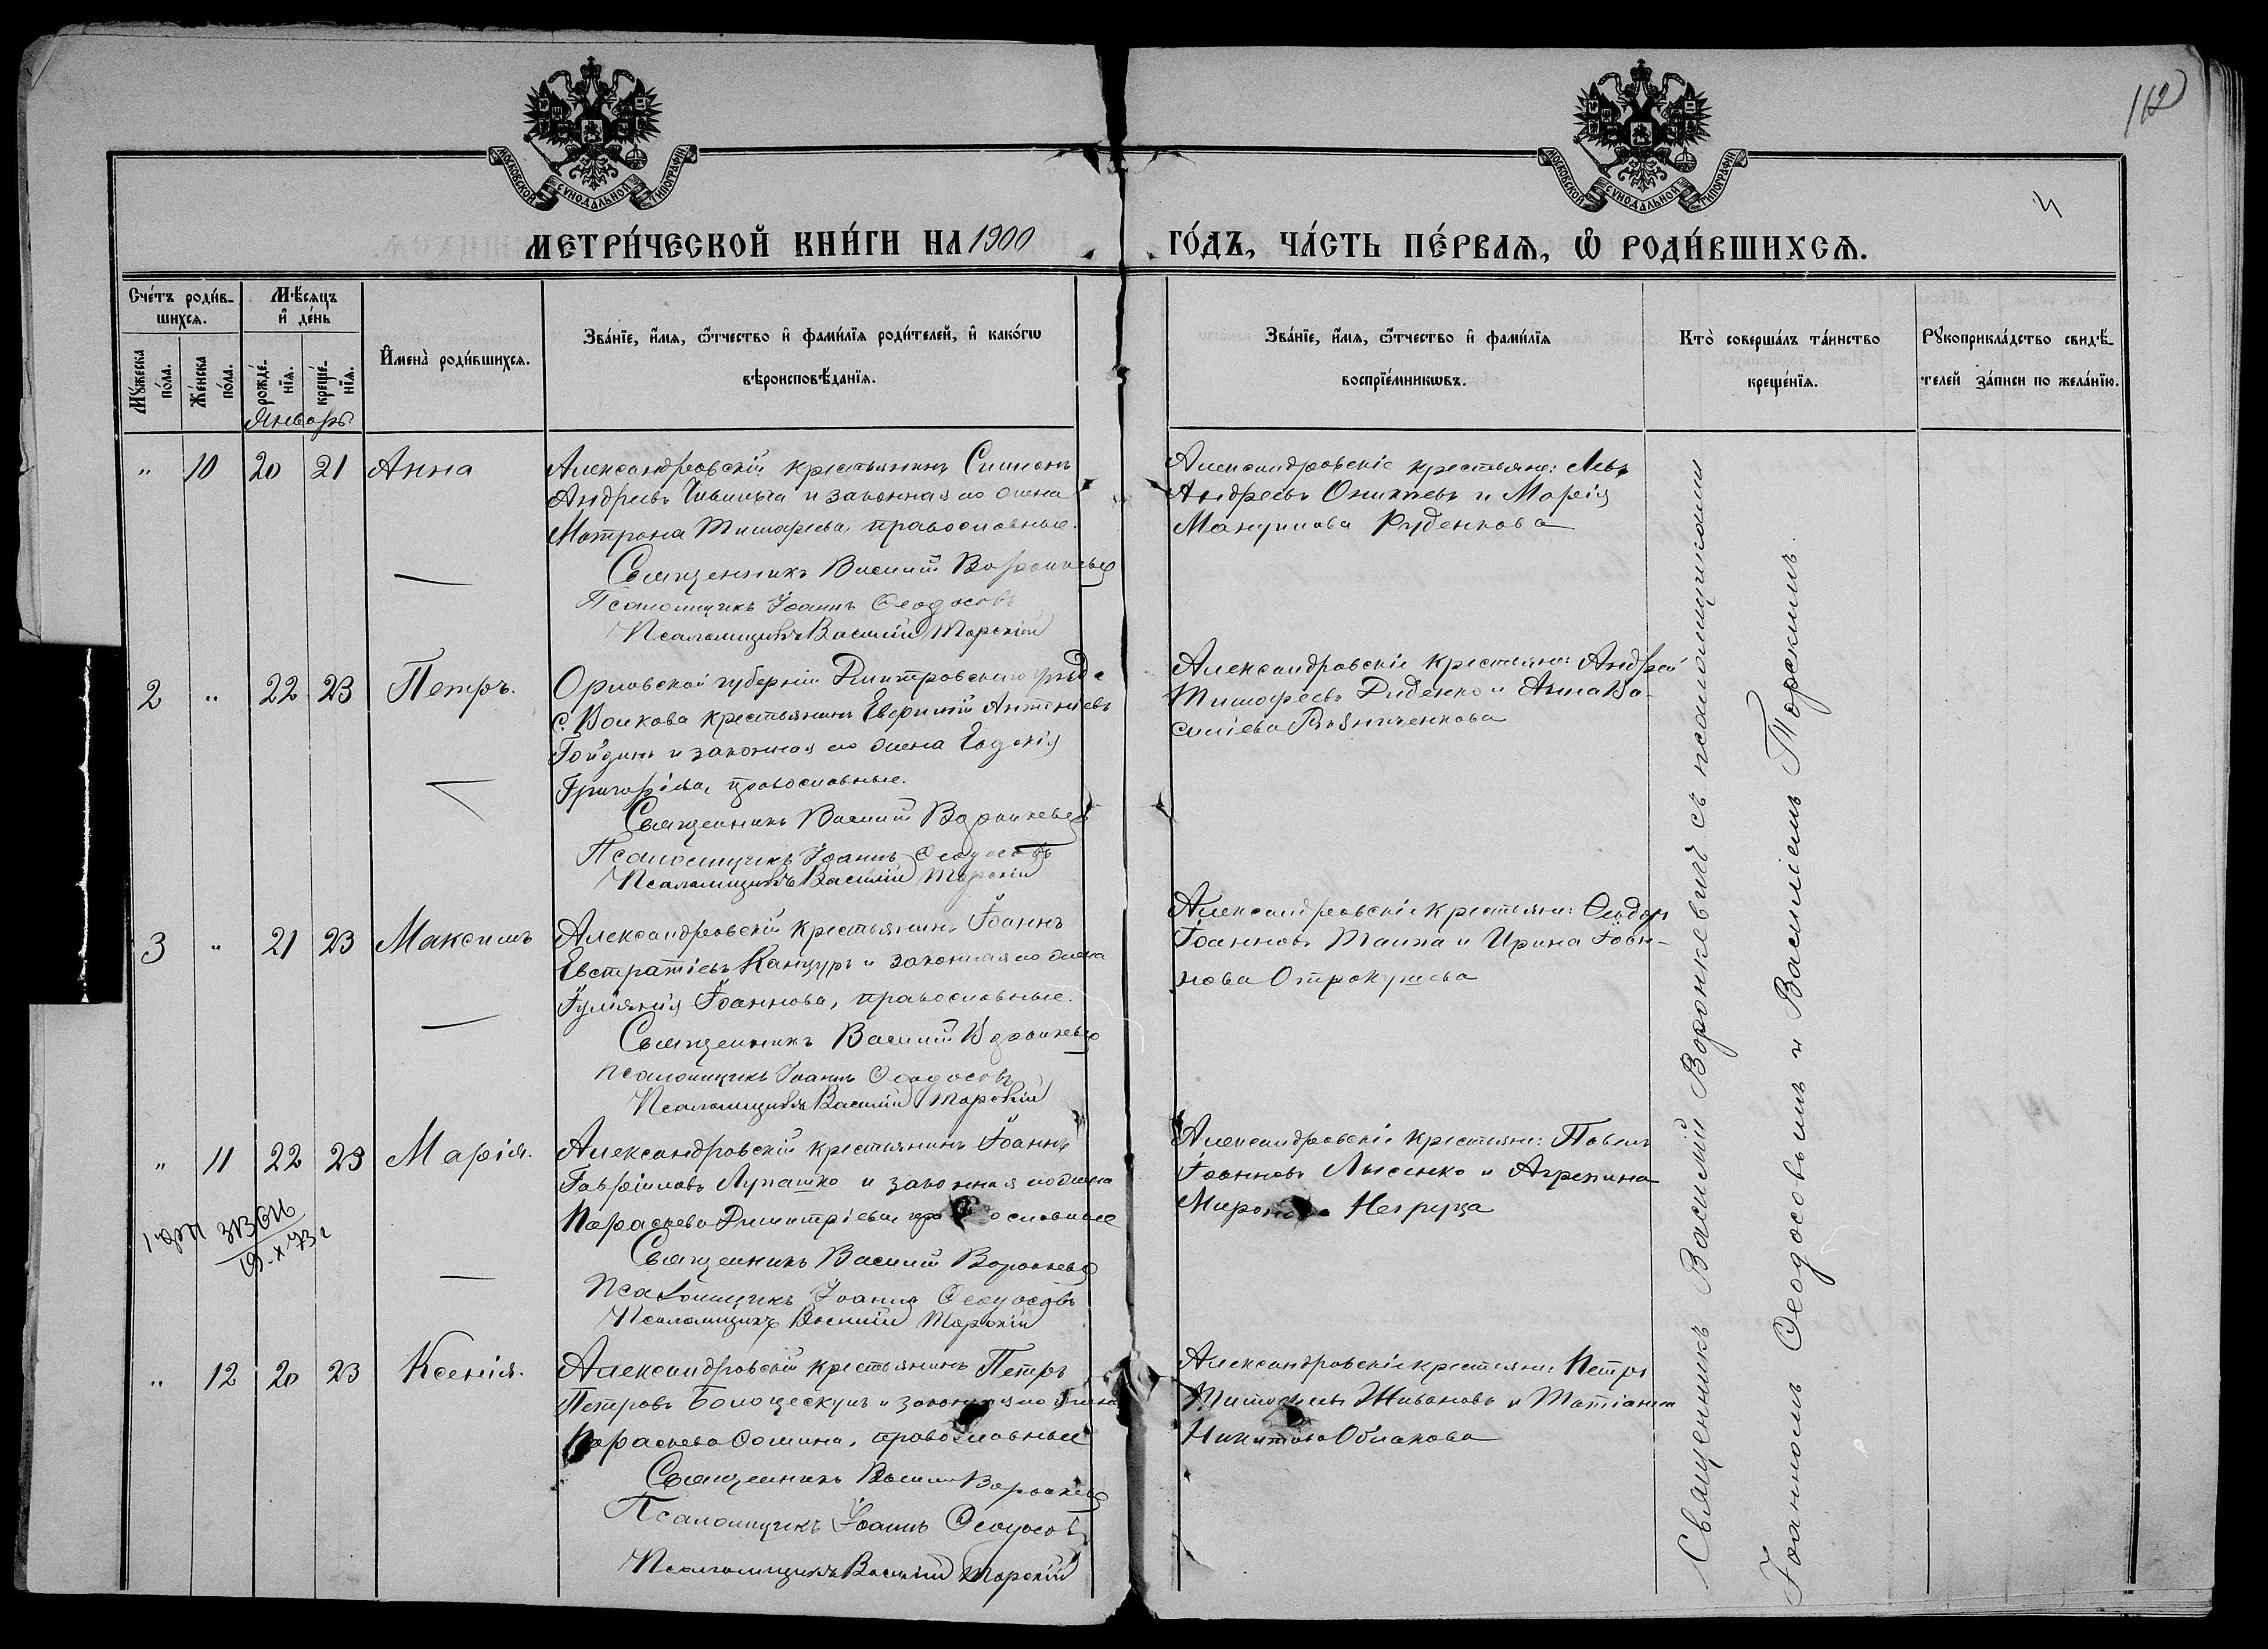 112
МОСКОВСКОЙ СУНОДАЛЬНОЙ ТИПОГРАФІИ
МОСКОВСКОЙ СУНОДАЛЬНОЙ ТИПОГРАФІИ
МЕТРИ́ЧЕСКОЙ КНИ́ГИ НА 1900
ГО́ДЪ, ЧА́СТЬ ПЕ́РВАѦ, Ѡ҆ РОДИ́ВШИХСѦ.
Сче́тъ роди́в-
шихсѧ.
Мꙋ́жеска по́ла.
Же́нска по́ла.
Мѣ́сѧцъ
и҆ де́нь
рожде́-
нїѧ.
креще́-
нїѧ.
Январь
И҆мена̀ роди́вшихсѧ.
Зва́нїе, и҆́мѧ, ѻ҆́тчество и҆ фами́лїѧ роди́телей, и҆ како́гѡ
вѣроисповѣ́данїѧ.
Зва́нїе, и҆́мѧ, ѻ҆́тчество и҆ фами́лїѧ
воспрїе́мникѡвъ.
Кто̀ соверша́лъ та́инство
креще́нїѧ.
Рꙋкоприкла́дство свидѣ́-
телей за́писи по жела́нїю.
" 10 20 21 Анна
Александровскій крестьянинъ Симеонъ
Андреевъ и законная его жена
Матрона Тимофеева, православные.
Священникъ Василій Воронкевичъ
Псаломщикъ Іоаннъ Ѳеодосовъ
Псаломщикъ Василій Торскій
Александровскіе крестьяне: Левъ
Андреевъ и Марія
Руденкова
2 " 22 23 Петръ.
Орловской губерніи Дмитровскаго уѣзда
с. Волкова крестьянинъ Евфимій Антоніевъ
и законная его жена Евдокія
Григоріева, православные.
Священникъ Василій Воронкевичъ
Псаломщикъ Іоаннъ Ѳеодосовъ
Псаломщикъ Василій Торскій
Александровскіе крестьяне: Андрей
Тимофеевъ Диденко и Анна Ва-
силіева
3 " 21 23 Максимъ
Александровскій крестьянинъ Іоаннъ
Евстратіевъ Канцуръ и законная его жена
Іуліянія Іоаннова, православные.
Священникъ Василій Воронкевичъ
Псаломщикъ Іоаннъ Ѳеодосовъ
Псаломщикъ Василій Торскій
Александровскіе крестьяне: Ѳеодоръ
Іоанновъ и Ирина Іоан-
нова
" 11 22 23 Марія.
19.X.73г
Александровскій крестьянинъ Іоаннъ
Гавріиловъ Лупашко и законная его жена
Параскева Димитріева, православные
Священникъ Василій Воронкевичъ
Псаломщикъ Іоаннъ Ѳеодосовъ
Псаломщикъ Василій Торскій
Александровскіе крестьяне: Павелъ
Іоанновъ Лысенко и Агрепина
Миронова Негруца
" 12 20 23 Ксенія.
Александровскій крестьянинъ Петръ
Петровъ и законная его жена
Параскева Ѳомина, православные
Священникъ Василій Воронкевичъ
Псаломщикъ Іоаннъ Ѳеодосовъ
Псаломщикъ Василій Торскій
Александровскіе крестьяне: Петръ
Тимофеевъ Живановъ и Татіанна
Никитова Облакова
Священникъ Василій Воронкевичъ съ псаломщиками
Іоанномъ Ѳеодосовымъ и Василіемъ Торскимъ.